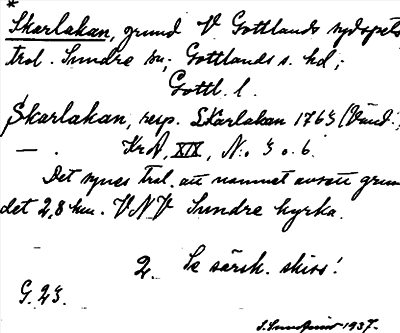 *
Skarlakan, grund V Gottlands sydspets
trol. Sundre sn; Gottlands s. hd;
Gottl. l.
Skarlakan, resp. Skarlakan 1763 (Vänd.,
— . KrA, XIX, N:o 3 o. 6.
Det synes trol. att namnet avsett grun
det 2,8 km. VNV Sundre kyrka.
2. Se särsk. skiss!
G. 23.
1937.